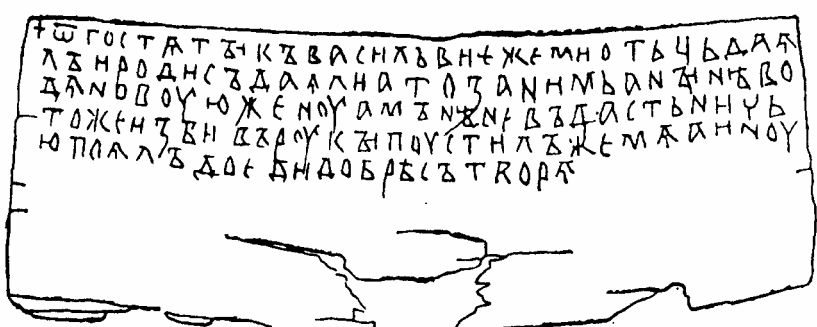 +ѾГОСТѦТЪІКЪВАСИЛЬВИЄЖЕМИОТЬЦЬДАѦ
ЛЪИРОДИСЪДАѦЛИАТОЗАНИМЬАНЪІНѢВО
ДѦНОВОУЮЖЕНОУАМЪНѢНЕВЪДАСТЬНИЧЬ
ТОЖЕИЗБИВЪРОУКЪІПОУСТИЛЪЖЕМѦАИНОУ
ЮПОѦЛЪДОЕДИДОБРѢСЪТВОРѦ